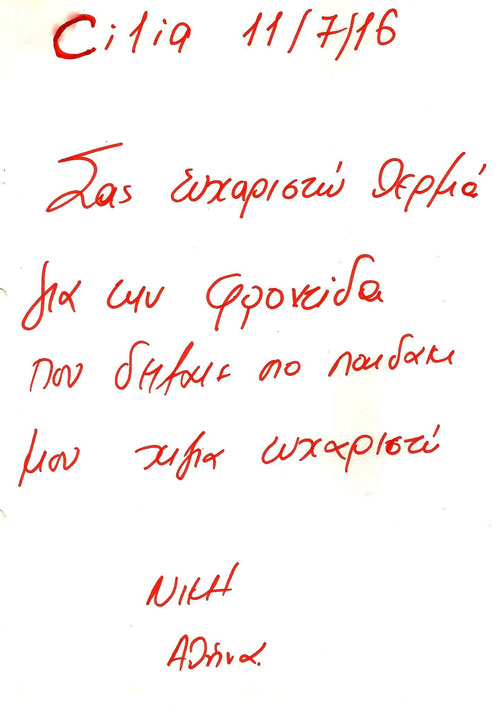 Cilia 11/7/16
Σας ευχαριστώ θερμά
για την φροντίδα
που στο παιδακι
μου χιλια ευχαριστώ
ΝΙΚΗ
Αθήνα.